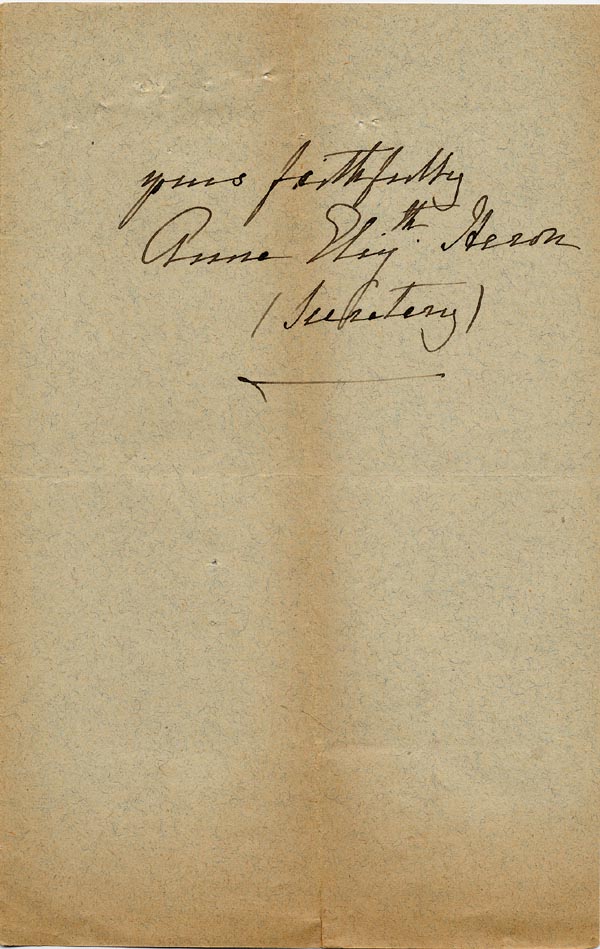 yours faithfully
Anne Eliz.th Heron
(Secretary)